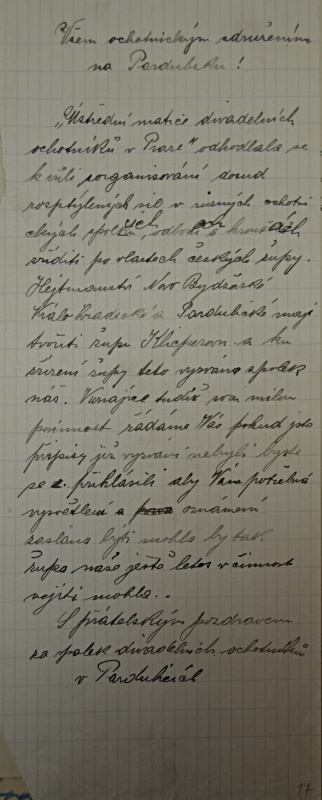 Všem ochotnickým sdružením
na Pardubsku!
„Ústřední matice divadelních
ochotníků v Praze" odhodlala se
k vůli sorganisování dosud
rozptýlených sil v různých ochotni
ckých spolkách, odborech a kroužcích
zříditi po vlastech českých župy.
Hejtmanství Novo Bydžovské
Králohradecké a Pardubické mají
tvořiti župu Klicperovu a ku
zřízení župy této vyzván spolek
náš. Konajíce tudíž svou milou
povinnost žádáme Vás pokud jste
přípisy již vyzváni nebyli byste
se přihlásili aby Vám potřebná
vysvětlení a oznámení
zaslána býti mohla by tak
župa naše ještě letos v činnost
vejíti mohla..
S přátelským pozdravem
za spolek divadelních ochotníků
v Pardubicích
17